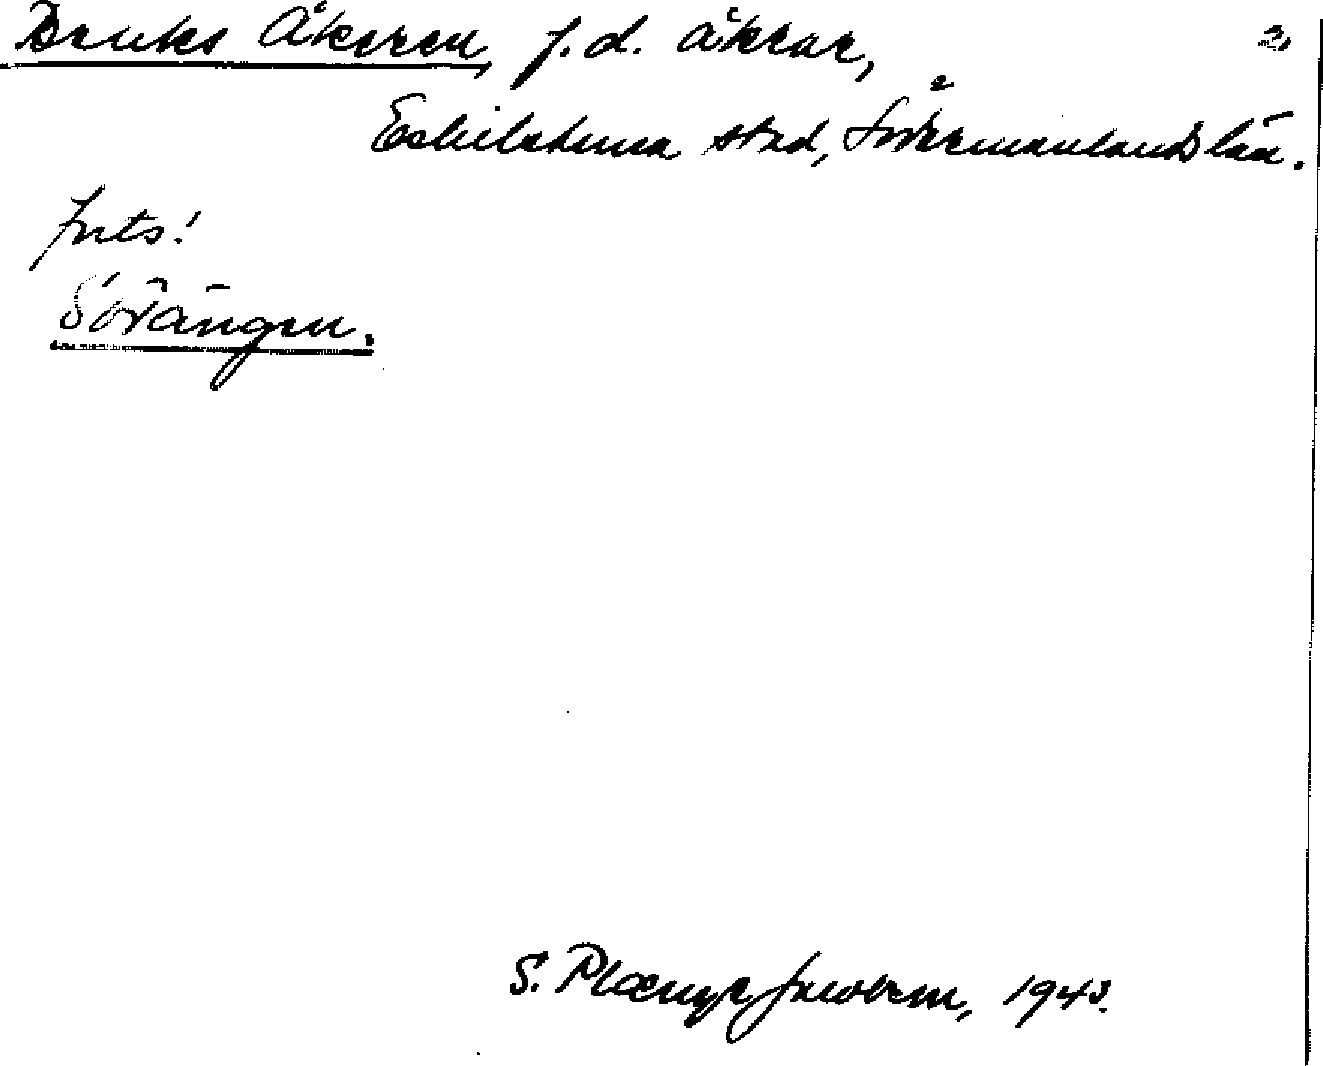 Bruks Åkeren, f.d. åkrar, 2.
Eskilstuna stad, Södermanlands län.
forts!
Sörängen.
S. Plænge Jacobson, 1943.